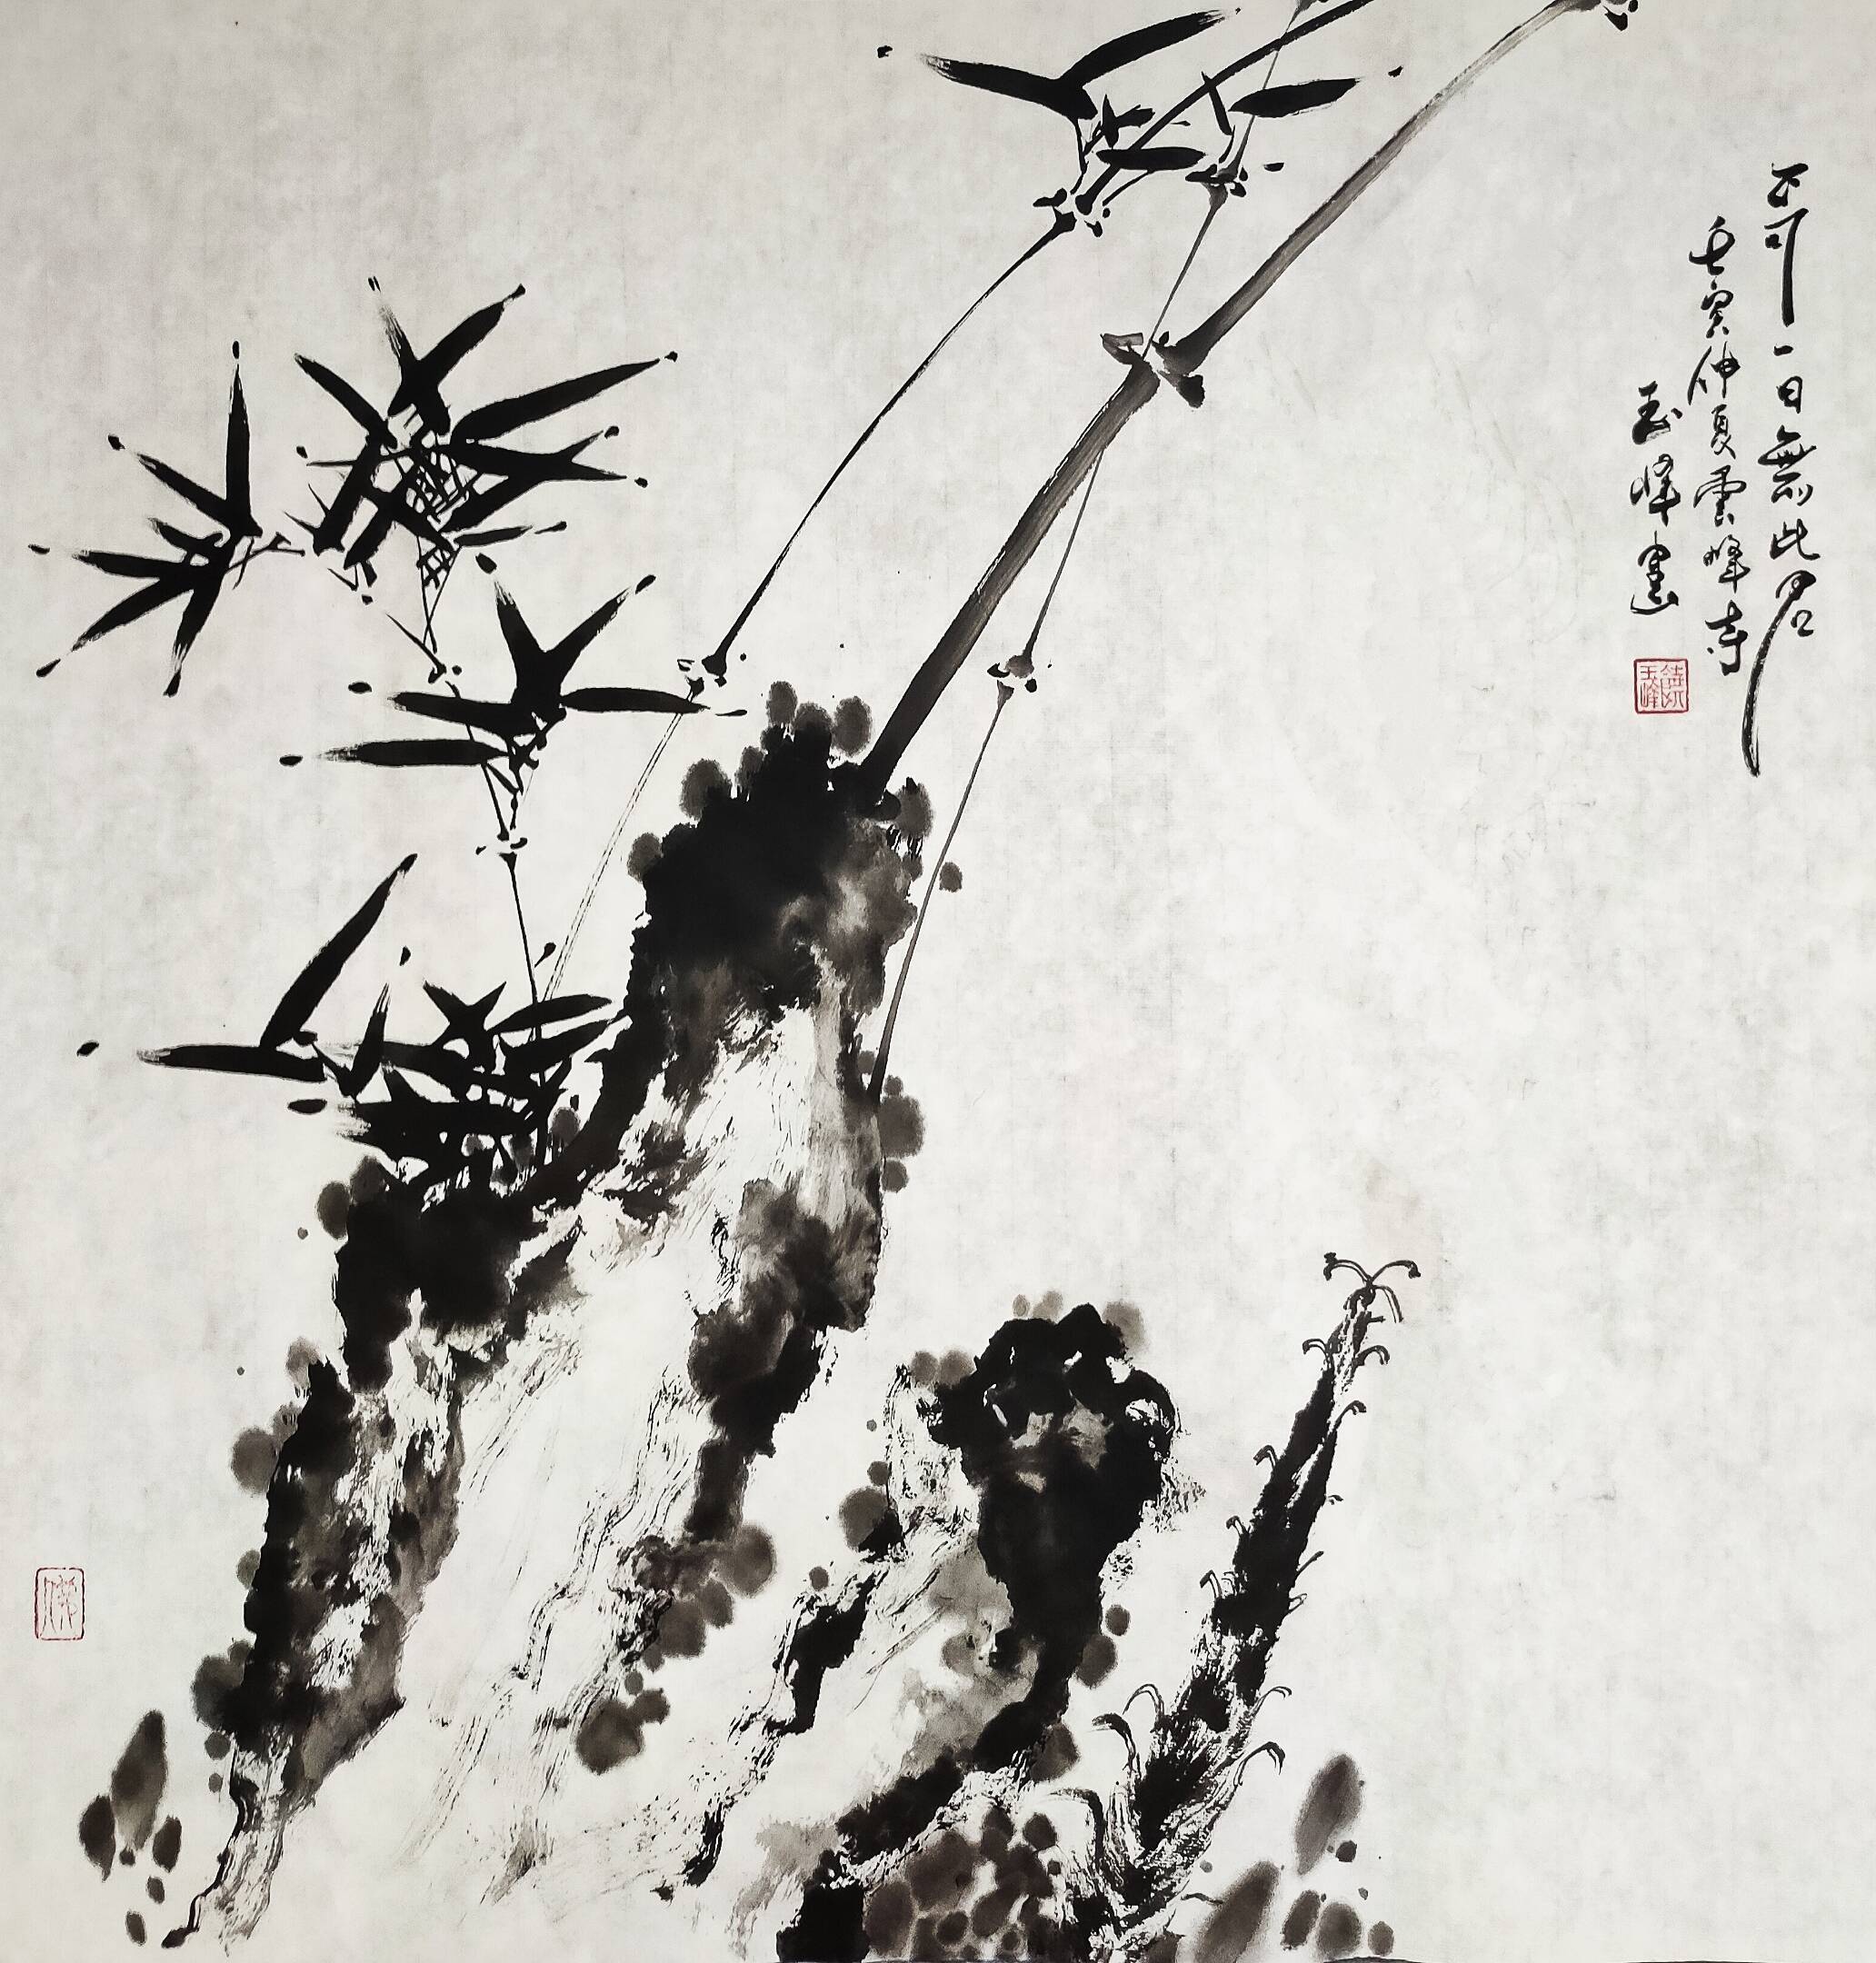 不可一日無此君
壬寅仲夏雲峰寺
玉峰畫